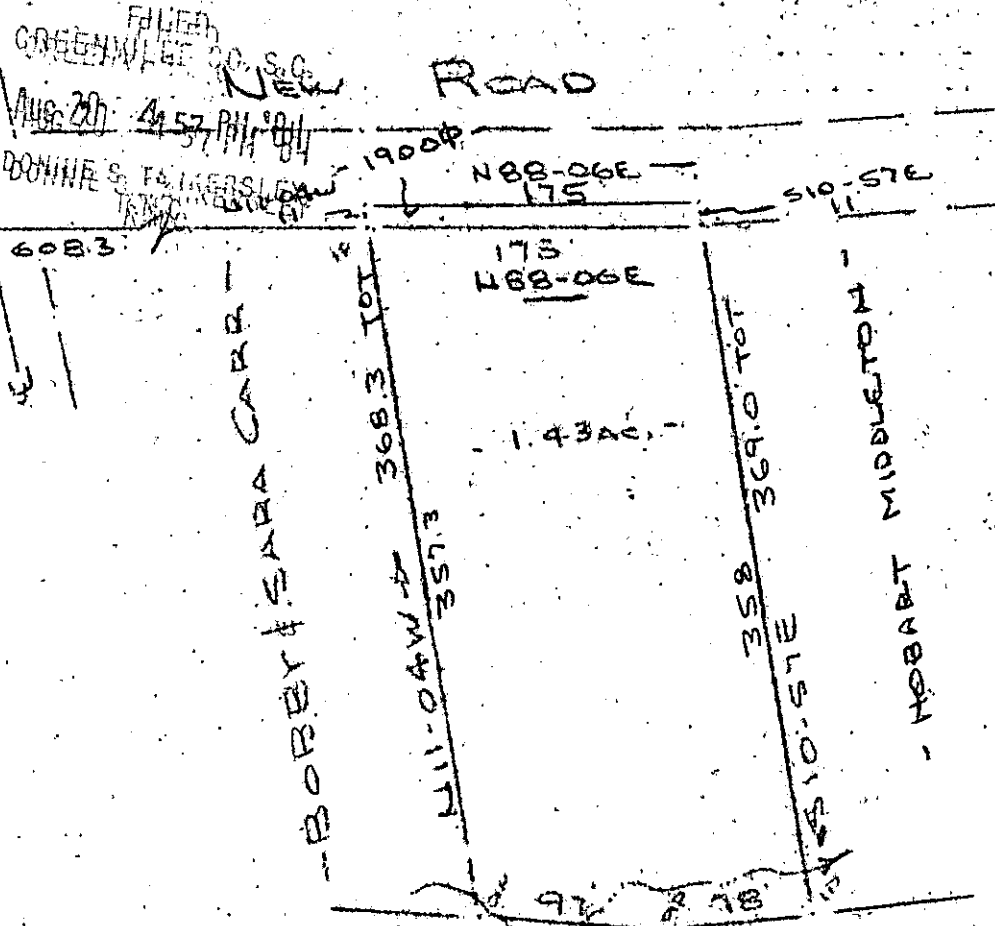 FILED
GREENVILLE CO. S.C.
AUG 20 4 57 PM '84
DONNIE S. TANKERSLEY
NEW ROAD
1900 ф
N88-06E
175
S10-57E
11
608.3
175
N88-06E
368.3 TOT
357.3
N11-04W
1.43 AC.
369.0 TOT
358
S10-57E
- BOBBY & SARA CARR -
- HOBART MIDDLETON -
97
78